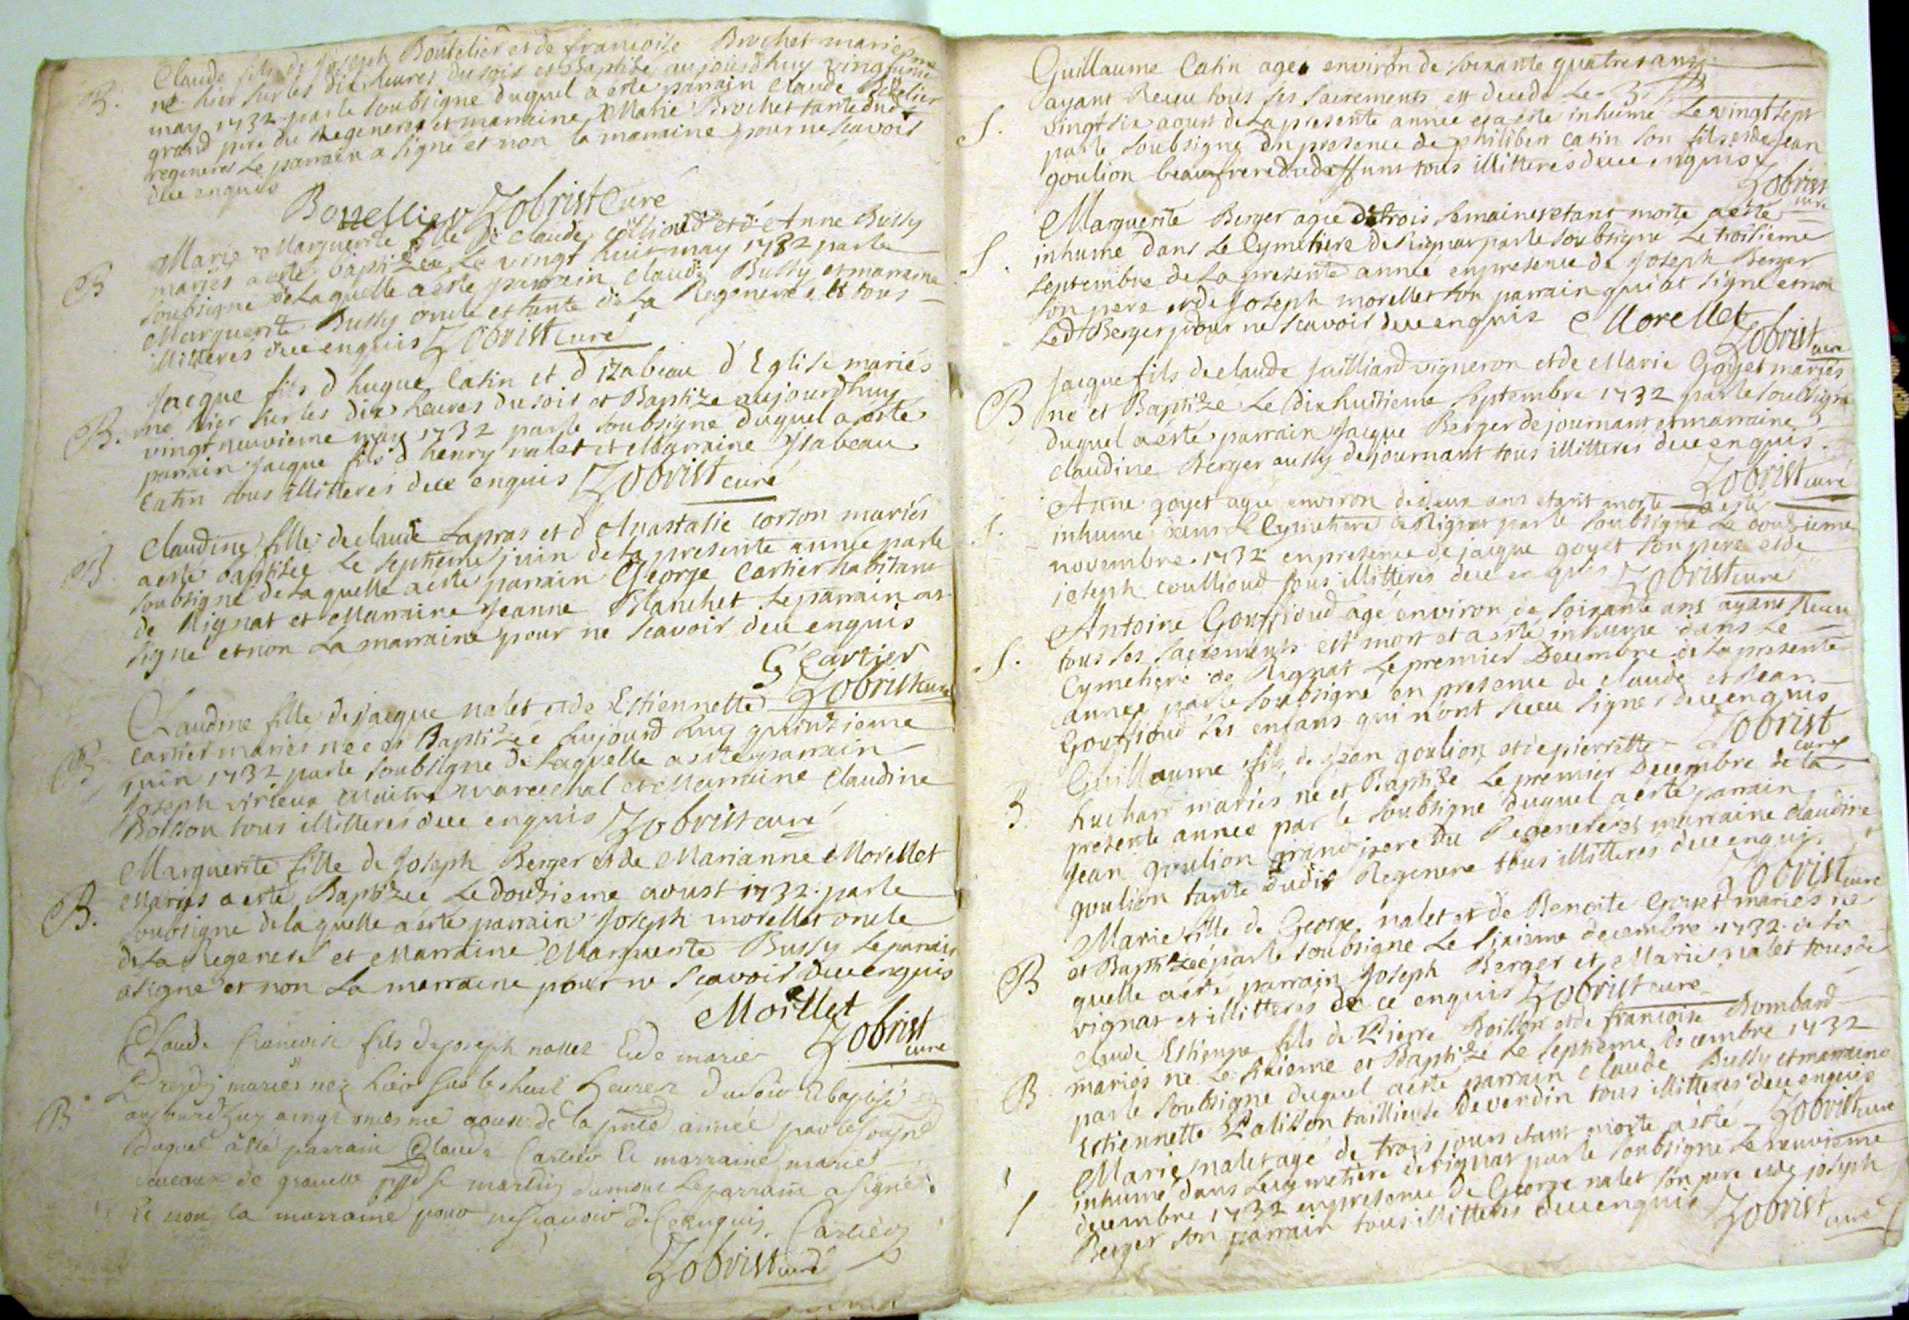 B. Claude fils de Joseph Boutelier et de francoise Brochet mariés
né hier sur les dix heures du soir et Baptizé aujourdhuy vingt
may 1732 par le soubsigné duquel a esté parrain Claude
grand pere du Regeneré et marraine Marie Brochet tante du
regeneré le parrain a signé et non la marraine pour ne scavoir
due enquis
Bouttellier Zobrist Curé
B Marie Marguerite fille de Claude et d Anne Bussy
mariés a esté baptizée le vingt huit may 1732 par le
soubsigné de laquelle a esté parrain Claude Bussy et marraine
Marguerite Bussy oncle et tante de la Regenerée et tous
illitteres due enquis Zobrist curé
B. Jacque fils d hugue Catin et d izabeau d Eglise mariés
né hier sur les dix heures du soir et Baptizé aujourdhuy
vingt neuvieme may 1732 par le soubsigné duquel a esté
parrain Jacque fils d henry nalet et Marraine Ysabeau
Catin tous illitteres due enquis Zobrist curé
B. Claudine fille de claude Lapras et d Anastasie corson mariés
a esté baptizée le septieme juin de la presente année par le
soubsigné de laquelle a esté parrain George Cartier habitant
de Rignat et Marraine Jeanne Blanchet le parrain a
signé et non la marraine pour ne scavoir due enquis
G Cartier
Zobrist curé
B Claudine fille de Jacque nalet et de Estiennette
Cartier mariés née et Baptizée aujourd huy quinzieme
juin 1732 par le soubsigné de laquelle a esté parrain
Joseph virieux Maitre marechal et Marraine Claudine
Boisson tous illitteres due enquis Zobrist curé
B. Marguerite fille de Joseph Berger et de Marianne Morellet
Mariés a esté Baptizée le douzieme aoust 1732 par le
soubsigné de laquelle a esté parrain Joseph morellet oncle
de la Regeneré et Marraine Marguerite Bussy le parrain
a signé et non la marraine pour ne scavoir due enquis
Morellet
Zobrist
curé
B Claude francois fils de joseph et de marie
mariés nez hier sur les huit heures du soir et baptisé
aujourdhuy vingt aoust de la pnte année par le
duquel a esté parrain Claude Cartier et marraine marie
de le parrain a signé
et non la marraine pour ne scavoir de ce enquis. Cartier
Zobrist curé
Guillaume Catin agé environ de soixante quatre ans
ayant Receu tous ses sacrements est decedé le
S. vingt six aoust de la presente année et a esté inhumé le vingt sept
par le soubsigné en presence de philibert Catin son fils et de Jean
goulion beaufrere dudeffunt tous illitteres due enquis
Zobrist
curé
Marguerite Berger agée de trois semaines etant morte a esté
S. inhumé dans le Cymetiere de Rignat par le soubsigné le troisieme
septembre de la presente année en presence de Joseph Berger
son pere et de Joseph morellet son parrain qui at signé et non
led Berger pour ne scavoir due enquis Morellet
Zobrist
curé
Jacque fils de claude Juilliard vigneron et de Marie Goyet mariés
B né et Baptizé le dix huitieme septembre 1732 par le soubsigné
duquel a esté parrain Jacque Berger de journant et marraine
claudine Berger aussy de journant tous illitteres due enquis.
Zobrist curé
Anne goyet agée environ de deux ans etant morte a esté
S. inhumé dans le Cymetiere de Rignat par le soubsigné le douzieme
novembre 1732 en presence de jacque goyet son pere et de
joseph coullioud tous illitteres due enquis Zobrist curé
Antoine Gouffioud agé environ de soixante ans ayant Receu
S. tous ses sacrements est mort et a esté inhumé dans le
Cymetiere de Rignat le premier Decembre de la presente
année par le soubsigné en presence de claude et Jean
Gouffioud ses enfans qui n'ont sceu signer due enquis
Zobrist
curé
Guillaume fils de jean goulion et de pierrette
B. huchart mariés né et Baptizé le premier Decembre de la
presente année par le soubsigné duquel a esté parrain
Jean goulion grand pere du Regeneré et marraine claudine
goulion tante dudit Regeneré tous illitteres due enquis
Zobrist curé
Marie fille de George nalet et de Benoite Goiset mariés né
B et Baptizée par le soubsigné le sixieme decembre 1732 de la
quelle a esté parrain Joseph Berger et Marie nalet tous de
vignat et illitteres de ce enquis Zobrist curé
claude Estienne fils de Pierre Boisson et de francoise Bombard
B mariés né le sixieme et Baptizé le septieme decembre 1732
par le soubsigné duquel a esté parrain claude Bussy et marraine
Estiennette tailleuse de verdin tous illitteres due enquis
Zobrist curé
Marie nalet agé de trois jours etant morte a esté
S inhumé dans le cymetiere de rignat par le soubsigné le neuvieme
decembre 1732 en presence de George nalet son pere et de joseph
Berger son parrain tous illitteres due enquis Zobrist curé